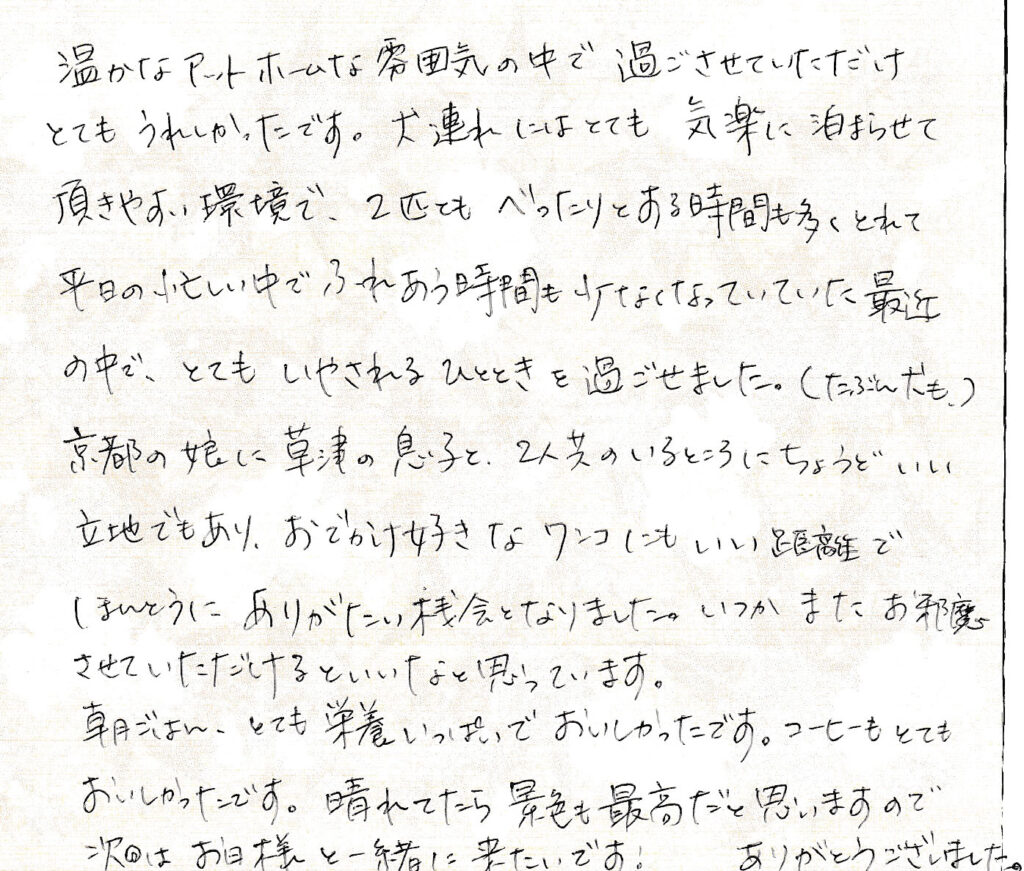 温かなアットホームな雰囲気の中で過ごさせていただけ
とてもうれしかったです。犬連れにはとても気楽に泊まらせて
頂きやすい環境で、2匹ともべったりとある時間も多くとれて
平日の忙しい中でふれあう時間も少なくなっていていた最近
の中で、とてもいやされるひとときを過ごせました。(たぶん犬も、)
京都の娘に草津の息子と、2人共のいるところにちょうどいい
立地でもあり、おでかけ好きなワンコにもいい距離で
ほんとうにありがたい機会となりました。いつかまたお邪魔
させていただけるといいなと思っています。
朝ごはん、とても栄養いっぱいでおいしかったです。コーヒーもとても
おいしかったです。晴れてたら景色も最高だと思いますので
次回はお日様と一緒に来たいです! ありがとうございました。